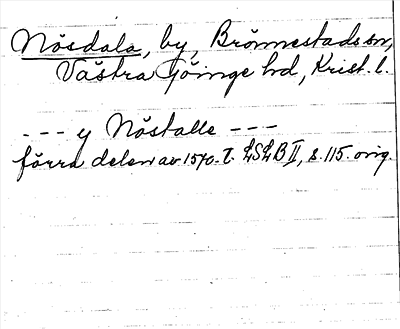 Nösdala, by, Brönnestads sn,
Västra Göinge hd, Krist. l.
--- y Nöstalle ---
förra delen av 1570-t. LSLB II, s. 115. orig.